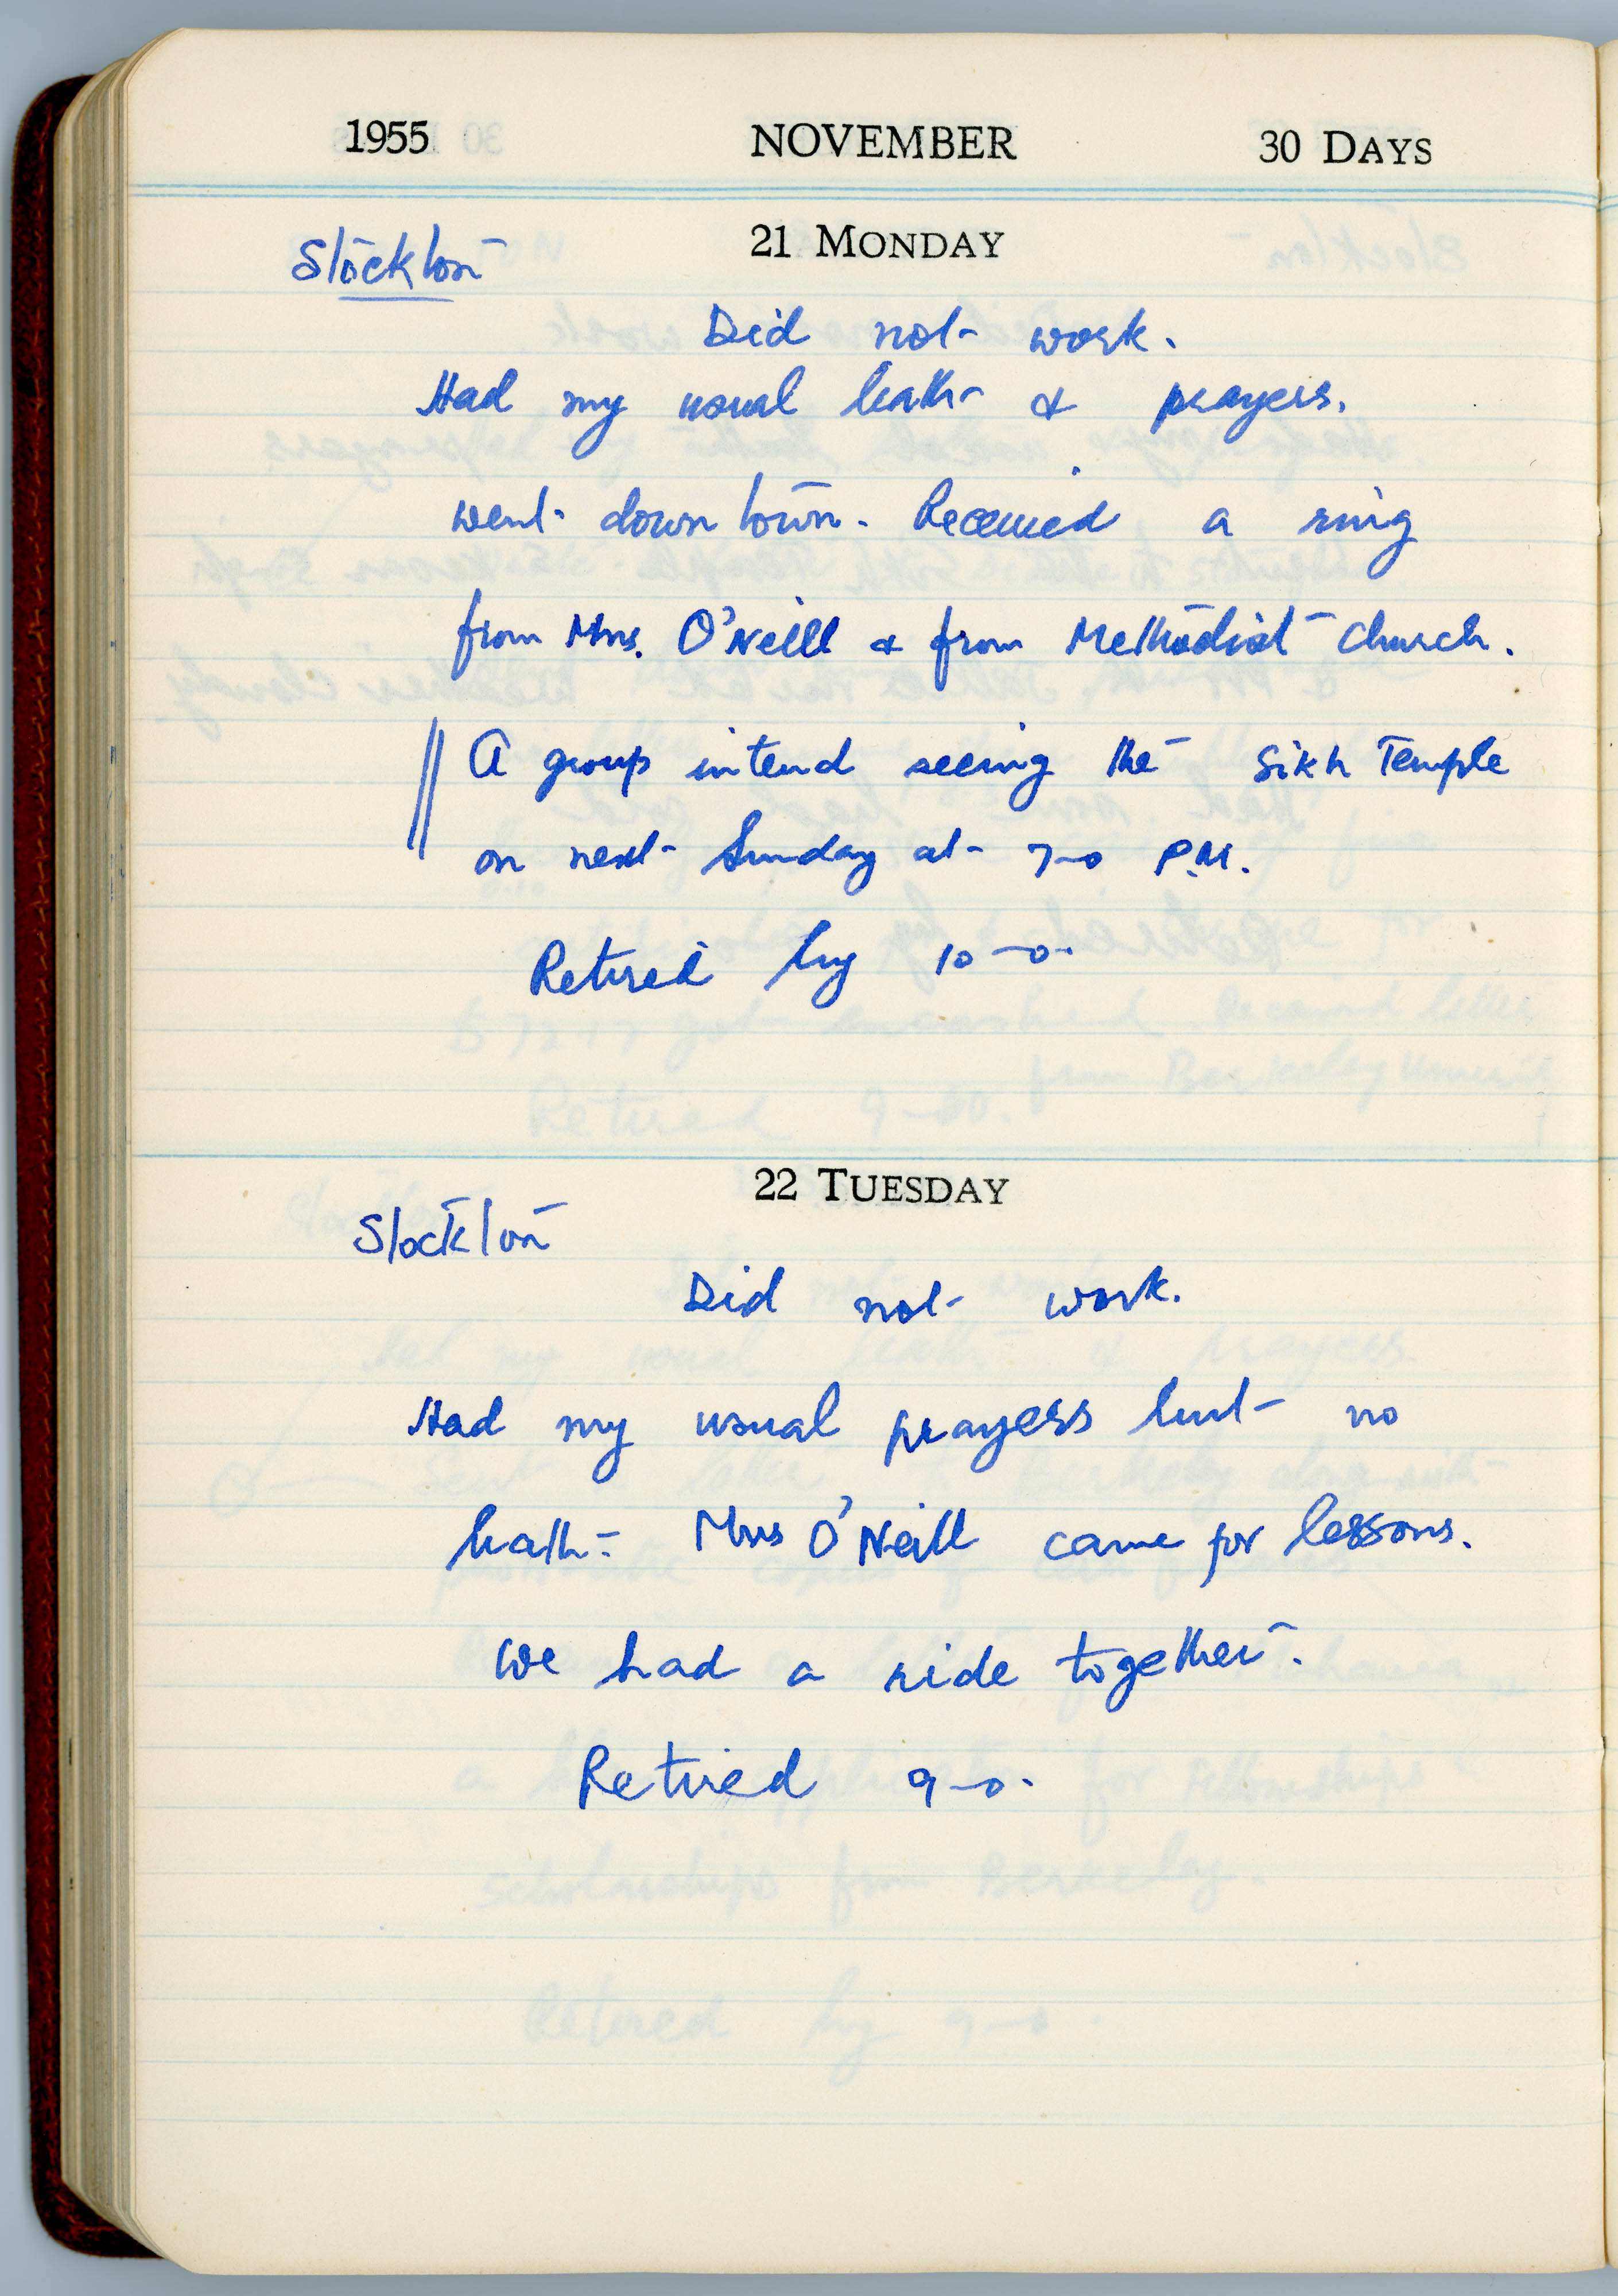 1955 NOVEMBER 30 DAYS
21 MONDAY
Stockton
Did not work.
Had my usual bath & prayers.
went down town. Received a ring
from Mrs. O'Neill & from Methodist Church.
A group intend seeing the Sikh Temple
on next Sunday at 7-0 P.M.
Retired by 10-0.
22 TUESDAY
Stockton
Did not work.
Had my usual prayers but no
bath. Mrs O'Neill came for lessons.
We had a ride together.
Retired 9-0.